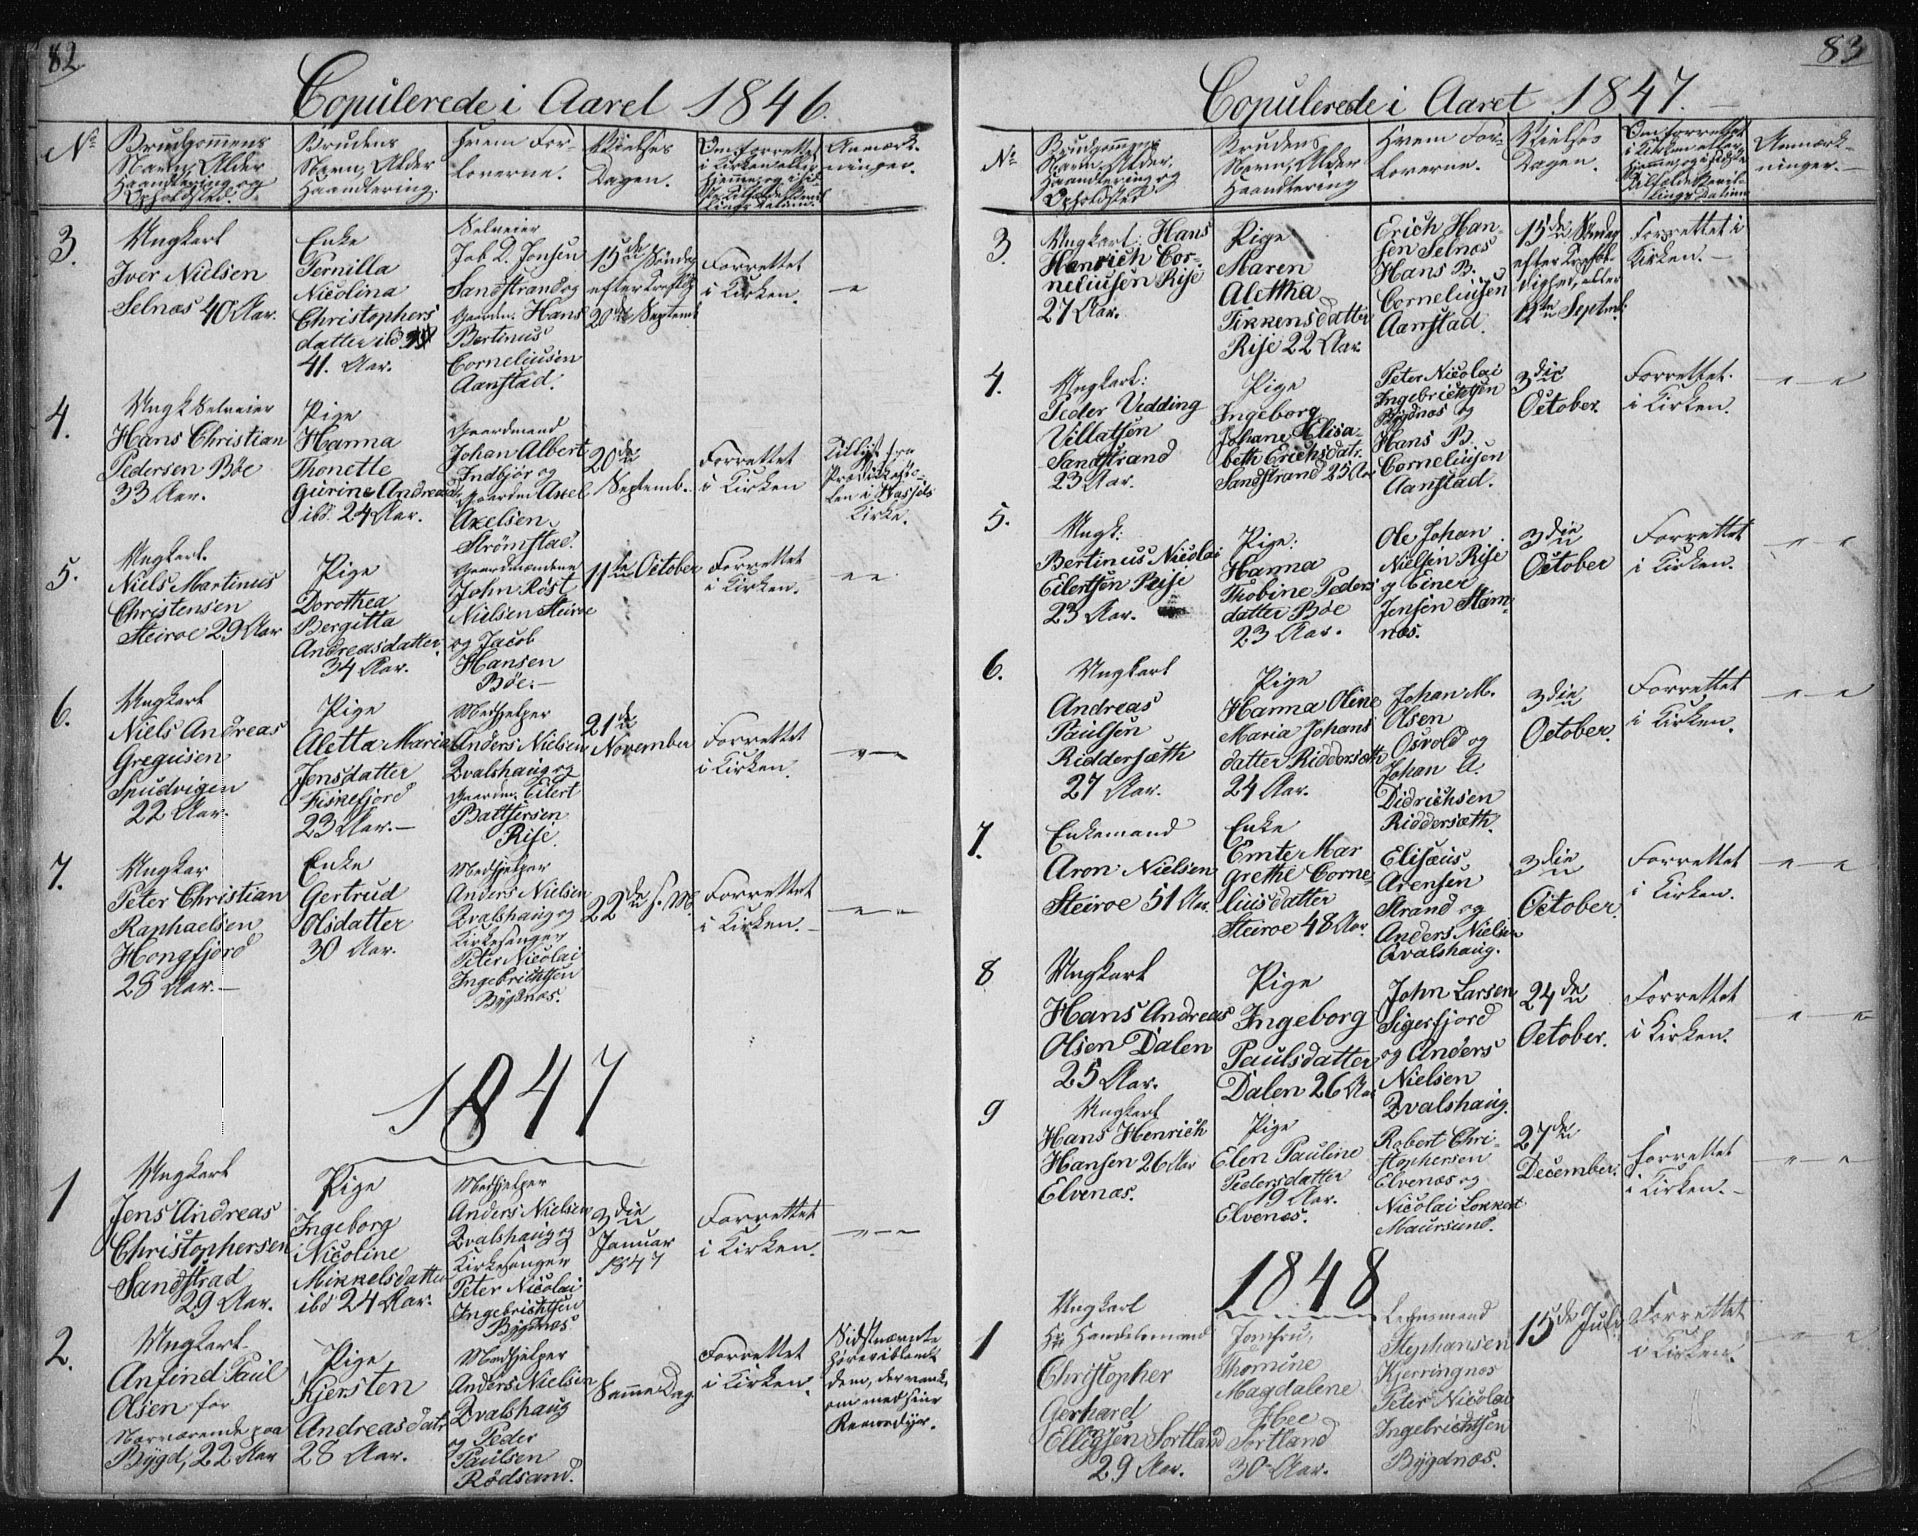 82
Copulerede i Aaret 1846.
No
Brudgommens
Navn, Alder
Haandtering og
Opholdsted.
Brudens
Navn, Alder
Haandtering.
Hvem For-
loverne.
Vielses
Dagen.
Om forrettet
i Kirken eller
hjemme, og i sid-
Anmærk-
ninger.
3.
Ungkarl
Iver Nielsen
Selnæs 40 Aar.
Enke
Pernilla
Nicolina
Christophers
datter ibd
41. Aar.
Selveier
Job Q. Jonsen
Sandstrand og
Gaardm. Hans
Bertinus
Corneliusen
Aanstad.
15de Søndag
efter Trefoldig
20de Septemb
Forrettet
i Kirken.
— " —
4.
Ungk Selveier
Hans Christian
Pedersen Bøe
33 Aar.
Pige
Hanna
Thonette
Gurine Andreasd.
ibd. 24 Aar.
Gaardmand
Johan Albert
Indbjör og
Gaardm Axel
Axelsen
Strömstad.
20de
Septemb.
Forrettet
i Kirken
Tillyst fra
Prædikesto-
len i Hassels
Kirke.
5.
Ungkarl.
Niels Martinus
Christensen
Steiroe 29 Aar
Pige
Dorothea
Bergitta
Andreasdatter
34 Aar.
Gaardmændene
John Röst
Nielsen Steiroe
og Jacob
Hansen
Böe. —
11te October
Forrettet
i Kirken.
" — "
6.
Ungkarl
Niels Andreas
Gregusen
Spudvigen
22 Aar.
Pige
Aletta Maria
Jensdatter
Fiskefjord
23 Aar. —
Medhjelper
Anders Nielsen
Kvalshaug og
Gaardm. Eilert
Battsersen
Rise.
21de
November
Forrettet
i Kirken.
— " —
7.
Ungkar
Peter Christian
Raphaelsen
Hongfjord
28 Aar. —
Enke
Gertrud
Olsdatter
30 Aar.
Medhjelper
Anders Nielsen
Kvalshaug og
Kirkesanger
Peter Nicolai
Ingebrichtsen
Bÿgdnæs.
22de s. M.
Forrettet
i Kirken. —
— " — "
1847
1
Ungkarl
Jens Andreas
Christophersen
Sandstrad
29 Aar.
Pige
Ingeborg
Nicoline
Mikkelsdatter
ibd 24 Aar.
Medhjelper
Anders Nielsen
Kvalshaug og
Kirkesanger
Peter Nicolai
Ingebrichtsen
Bÿgdnæs
3die
Januar
1847
Forrettet
i Kirken.
— " — "
2.
Ungkarl
Anfind Paul
Olsen for
Nærværende paa
Bÿgd, 22 Aar
Pige
Kjersten
Andreasdatr
28 Aar.
Medhjelper
Anders Nielsen
Kvalshaug
og Peder
Paulsen
Rödsand.
Samme Dag
Forrettet
i Kirken.
Sidstnævnte
iblandt
dem, der vank
om med sine
Reensdyr.
83
Copulerede i Aaret 1847. —
No
Brudgommens
Navn, Alder,
Haandtering og
Opholdsted
Brudens
Navn, Alder
Haandtering
Hvem For-
loverne.
Vielses
Dagen.
Om forrettet
i Kirken eller
hjemme, og i sidste
Tilfælde Bevil-
lings Datum
Anmærk-
ninger. —
3.
Ungkarl: Hans
Henrich Cor-
neliusen Rise
27 Aar.
Pige
Maren
Alettha
Tikkensdatter
Rise 22 Aar
Erich Han-
sen Selnæs
Hans B.
Corneliusen
Aanstad.
15de Søndag
efter Trefol-
dighed, eller
12te Septemb.
Forrettet i
Kirken. —
4.
Ungkarl:
Peder Vedding
Villatsen
Sandstrand
23 Aar.
Pige
Ingeborg
Johane Elisa-
beth Erichsdatr.
Sandstrand 25 Aar
Peter Nicolai
Ingebrichtsen
Bÿgdnæs og
Hans B.
Corneliusen
Aanstad.
3die
October.
Forrettet.
i Kirken.
" — "
5.
Ungk:
Bertinus Nicolai
Eilertsen Rise
23 Aar.
Pige:
Hanna
Thobine Peders
datter Böe
23 Aar.
Ole Johan
Nielsen Rise
og Einer
Jensen Stam-
næs.
3die
October
Forrettet
i Kirken.
" — "
6.
Ungkarl
Andreas
Paulsen
Riddersæth
27 Aar.
Pige
Hanna Oline
Maria Johans
datter Riddersæth
24 Aar.
Johan M.
Olsen
Osvold og
Johan A.
Didrichsen
Riddersæth.
3die
October.
Forrettet
i Kirken.
" — "
7.
Enkemand
Aron Nielsen
Steiroe 51 Aar.
Enke
Emte Mar
grethe Corne-
liusdatter
Steiroe 48 Aar.
Elisæus
Arensen
Strand og
Anders Nielsen
Qvalshaug.
3die
October.
Forrettet
i Kirken.
" — "
8
Ungkarl
Hans Andreas
Olsen Dalen
25 Aar.
Pige
Ingeborg
Paulsdatter
Dalen 26 Aar
John Larsen
Sigerfjord
og Anders
Nielsen
Kvalshaug.
24de
October.
Forrettet
i Kirken.
" — "
9
Ungkarl
Hans Henrich
Hansen 26 Aar
Elvenæs.
Pige
Elen Pauline
Pedersdatter
19 Aar.
Elvenæs.
Robert Chri-
stophersen
Elvenæs og
Nicolai Lokkert
Maursund.
27de
December.
Forrettet
i Kirken. —
" — "
1848
1
Ungkarl
Hr Handelsmand
Christopher
Gerhard
Elligsen Sortland
29 Aar.
Jomfru,
Thomine
Magdalene
Hee
Sortland
30 Aar.
Lensmand
Stephansen
Kjerringnæs
Peter Nicolai
Ingebrichtsen
Bÿgdnæs.
15de Juli
Forrettet
i Kirken.
" — "